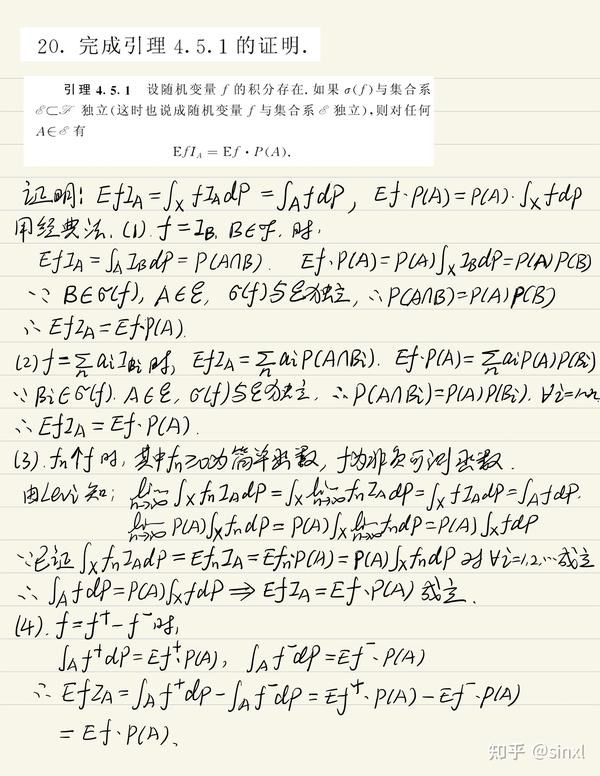 20. 完成引理 4.5.1 的证明.
引理 4.5.1 设随机变量 f 的积分存在. 如果 σ(f)与集合系
ℰ⊂ℱ 独立(这时也说成随机变量 f 与集合系 ℰ 独立),则对任何
A∈ℰ 有
EfI_A = Ef · P(A).
证明: EfI_A = ∫_X f I_A dP = ∫_A f dP, Ef·P(A) = P(A)·∫_X f dP
用经典法. (1). f = I_B, B∈ℱ. 时,
EfI_A = ∫_A I_B dP = P(A∩B). Ef·P(A) = P(A)∫_X I_B dP = P(A)P(B)
∵ B∈σ(f), A∈ℰ, σ(f)与ℰ独立, ∴ P(A∩B) = P(A)P(B)
∴ EfI_A = Ef·P(A).
(2) f = ∑_n a_i I_{B_i} 时, EfI_A = ∑_n a_i P(A∩B_i). Ef·P(A) = ∑_n a_i P(A)P(B_i)
∵ B_i∈σ(f). A∈ℰ, σ(f)与ℰ独立. ∴ P(A∩B_i) = P(A)P(B_i). ∀i=1…n
∴ EfI_A = Ef·P(A).
(3). f_n↑f 时, 其中f_n≥0为简单函数, f为非负可测函数.
由Levi知: lim_{n→∞} ∫_X f_n I_A dP = ∫_X lim_{n→∞} f_n I_A dP = ∫_X f I_A dP = ∫_A f dP.
lim_{n→∞} P(A)∫_X f_n dP = P(A)∫_X lim_{n→∞} f_n dP = P(A)∫_X f dP
∵ 已证 ∫_X f_n I_A dP = Ef_n I_A = Ef_n·P(A) = P(A)∫_X f_n dP 对∀i=1,2,…成立
∴ ∫_A f dP = P(A)∫_X f dP ⇒ EfI_A = Ef·P(A) 成立.
(4). f = f⁺ - f⁻ 时,
∫_A f⁺ dP = Ef⁺·P(A), ∫_A f⁻ dP = Ef⁻·P(A)
∴ EfI_A = ∫_A f⁺ dP - ∫_A f⁻ dP = Ef⁺·P(A) - Ef⁻·P(A)
= Ef·P(A).
知乎 @sinxl